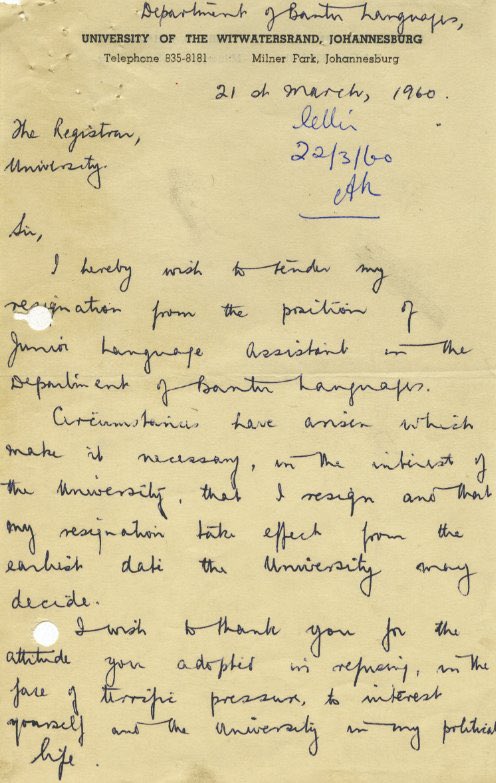 Department of Bantu Languages,
UNIVERSITY OF THE WITWATERSRAND, JOHANNESBURG
Telephone 835-8181 Milner Park, Johannesburg
21st March, 1960.
22/3/60
The Registrar,
University.
Sir,
I hereby wish to tender my
resignation from the position of
Junior Language Assistant in the
Department of Bantu Languages.
Circumstances have arisen which
make it necessary, in the interest of
the University, that I resign and that
my resignation take effect from the
earliest date the University may
decide.
I wish to thank you for the
attitude you adopted in refusing, in the
face of terrific pressure, to interest
yourself and the University in my political
life.